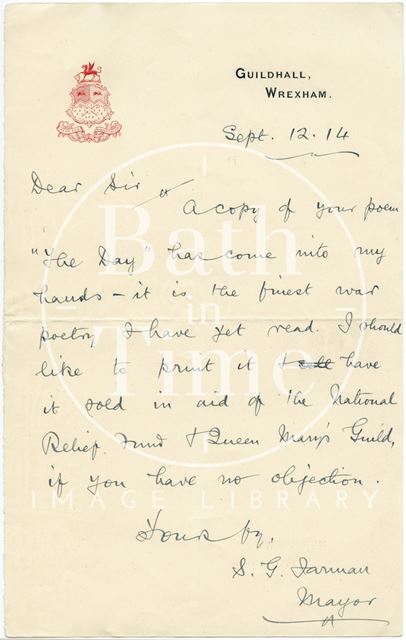 GUILDHALL,
WREXHAM.
Sept. 12. 14
Dear Sir
A copy of your poem
"The Day" has come into my
hands - it is the finest war
poetry I have yet read. I should
like to print it & have
it sold in aid of the National
Relief Fund & Queen Mary's Guild,
if you have no objection.
Yours ty.
S. G. Jarman
Mayor
Bath
in
Time
IMAGE LIBRARY